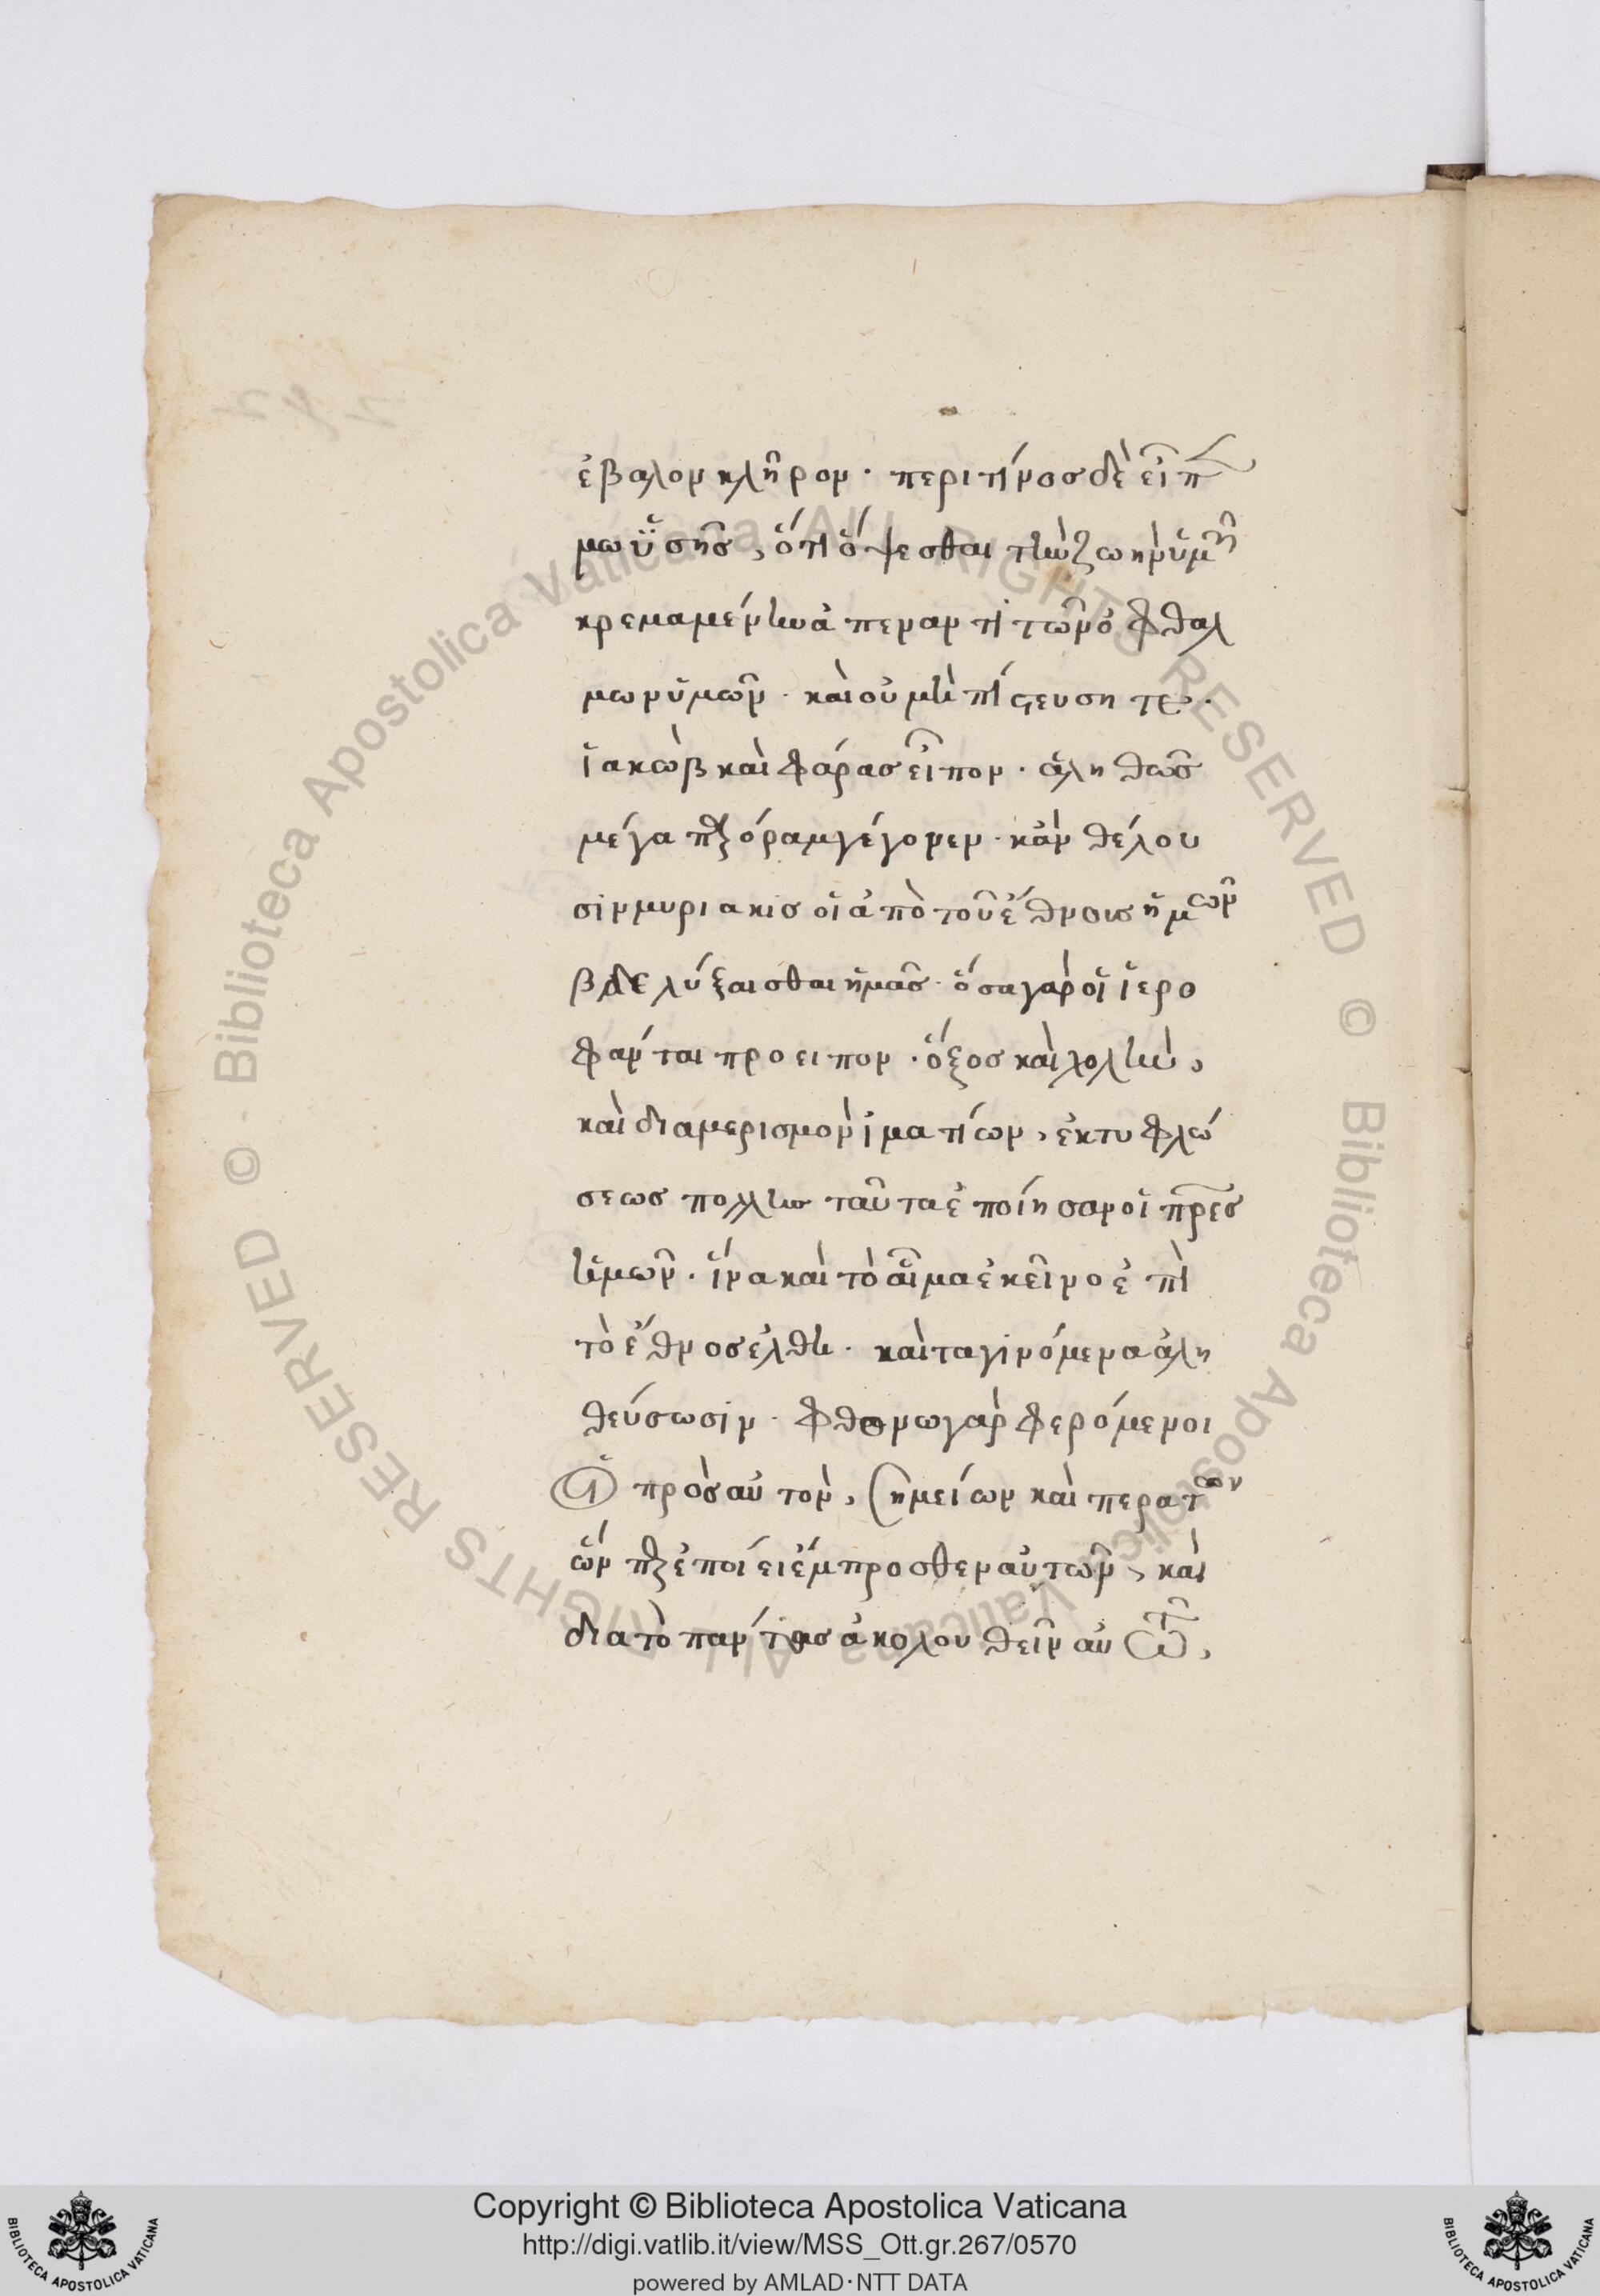 ἐβαλον κλῆρον · περι τίνοσ δὲ εἶπ
μωϋσῆσ, ὅτι ὄψεσθαι τὴν ζωην ὑμῶν
κρεμαμένην ἀπεναντι τῶν ὀφθαλ
μων ὑμῶν · καὶ οὐ μὴ πίστευσητε ·
ἰακὼβ καὶ φάρασ εἶπον · ἀληθῶσ
μέγα γέγονεν · κἀν θέλου
σιν μυριακισ οἱ ἀπὸ τοῦ ἔθνουσ ἡμῶν
βδελύξαισθαι ἡμᾶσ · ὅσα γαρ οἱ ἱερο
φάνται προειπον · ὄξοσ καὶ χολὴν,
καὶ διαμερισμὸν ἱματίων, ἐκτυφλώ
σεωσ πολλὴν ταῦτα ἐποίησαν οἱ πρεσ
ἡμῶν · ἵνα καὶ τὸ αἷμα ἐκεῖνο ἐπὶ
τὸ ἔθνοσ ἐλθη · καὶ τα γινόμενα ἀλη
θεύσωσιν · φθονω γαρ φερόμενοι
οἱ πρὸσ αὐτον, σημείων καὶ τερατων
ὧν ἐποίει ἔμπροσθεν αὐτῶν, και
δια τὸ παντασ ἀκολουθεῖν αὐτῶ,
Copyright © Biblioteca Apostolica Vaticana
http://digi.vatlib.it/view/MSS_Ott.gr.267/0570
powered by AMLAD·NTT DATA